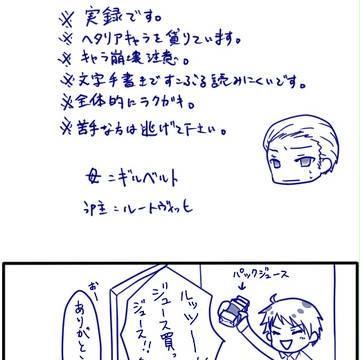 ※実録です。
※ヘタリアキャラを貸りています。
※キャラ崩壊注意。
※文字手書きですこぶる読みにくいです。
※全体的にラクガキ。
※苦手な方は逃げて下さい。
母=ギルベルト
卵主=ルートヴィッヒ
パックジュース
ルッツー
ジュース買っ
ジュース!!
おー
ありがと